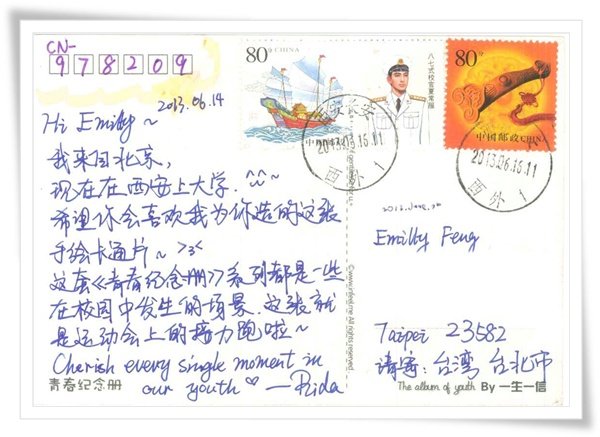 CN-
978209
2013.06.14
Hi Emily~
我来自北京,
现在在西安上大学. ^^~
希望你会喜欢我为你选的这张
手绘卡通片~ >3<
这套《青春纪念册》系列都是一些
在校园中发生的场景. 这张就
是运动会上的接力跑啦~
Cherish every single moment in
our youth ♡ —Rida
青春纪念册
80分 CHINA
八七式校官夏常服
80分
中国邮政 CHINA
2013.06.16.11
西外 1
2013.06.16.11
西外 1
Emilly Feng
Taipei 23582
请寄: 台湾 台北市
The album of youth By 一生一信